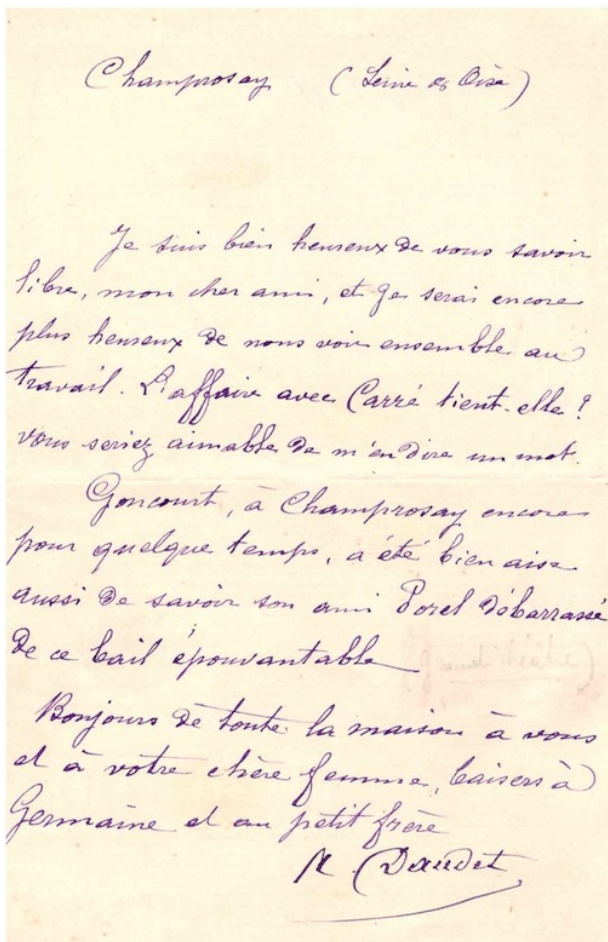 Champrosay (Seine & Oise)
Je suis bien heureux de vous savoir
libre, mon cher ami, et je serai encore
plus heureux de nous voir ensemble au
travail. L'affaire avec Carré tient-elle ?
vous seriez aimable de m'en dire un mot.
Goncourt, à Champrosay encore
pour quelque temps, a été bien aise
aussi de savoir son ami Porel débarrassé
de ce bail épouvantable
Bonjours de toute la maison à vous
et à votre chère femme, baisers à
Germaine et au petit frère
Daudet